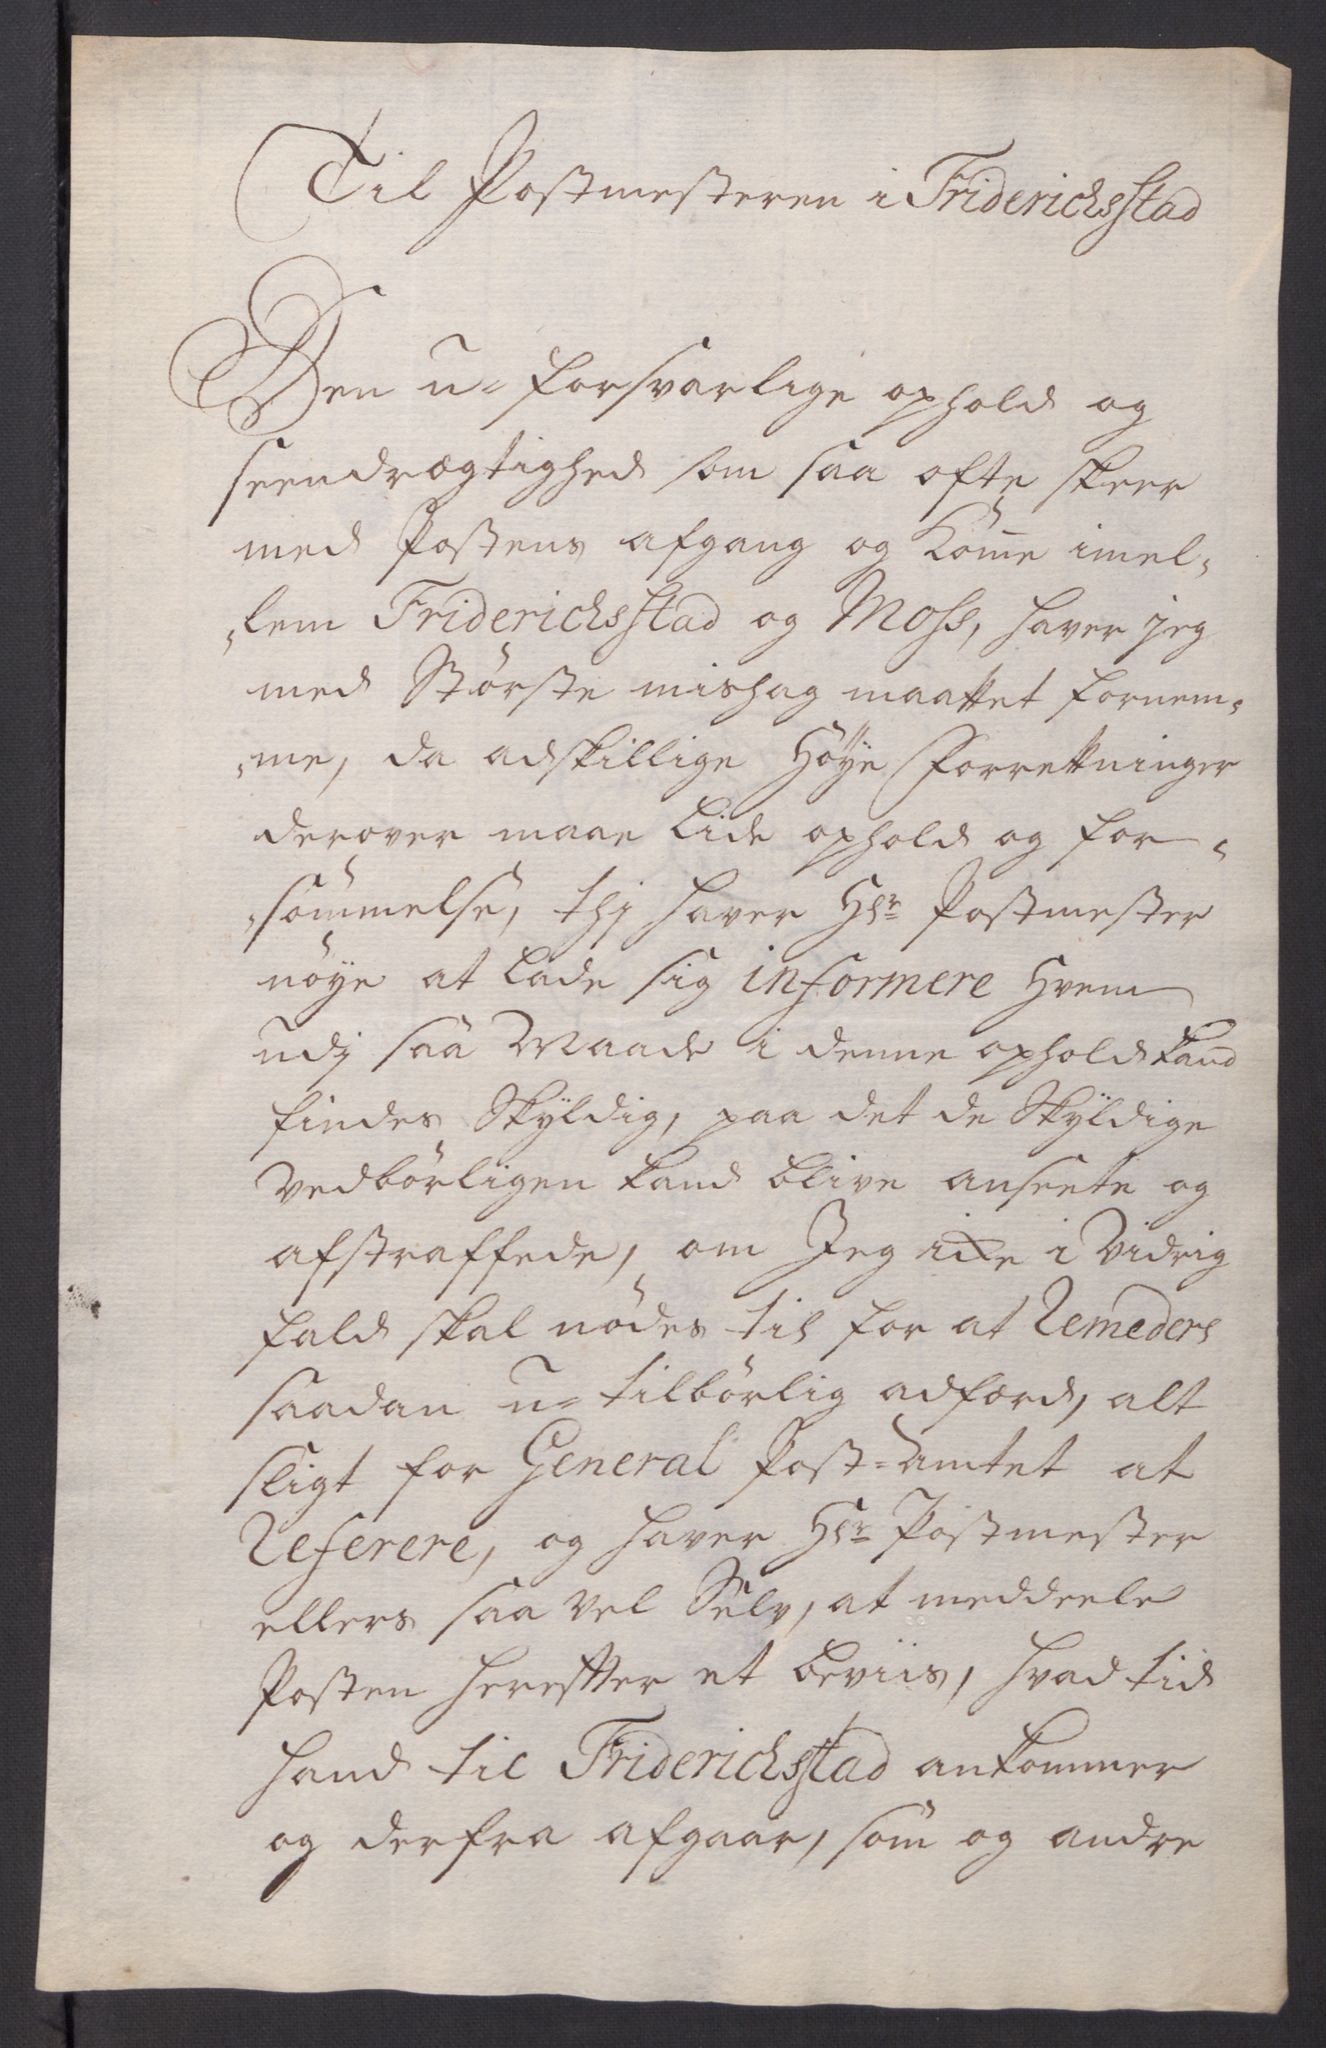 Til Postmesteren i Friderichsstad
Den u-forsvarlige ophold og
seendrægtighed som saa ofte skeer
med Postens afgang og Kom̅e imel-
-lem Friderichsstad og Moss, haver jeg
med Største mishag maattet fornem-
-me, da adskillige Høye Forretninger
derover maae lide ophold og for-
-sømmelse, thj haver Hr Postmester
nøye at lade sig informere Hvem
udj saa Maade i denne ophold kand
findes Skyldig, paa det de Skyldige
vedbørligen kand blive anseete og
afstraffede, om Jeg icke i Vidrig
fald skal nødes til for at Remedere
saadan u-tilbørlig adfærd, alt
sligt for General Post-Amtet at
Referere, og haver Hr Postmester
ellers saa vel Selv, at meddeele
Posten herefter et beviis, hvad tid
hand til Friderichstad ankommer
og derfra afgaar, som og andre